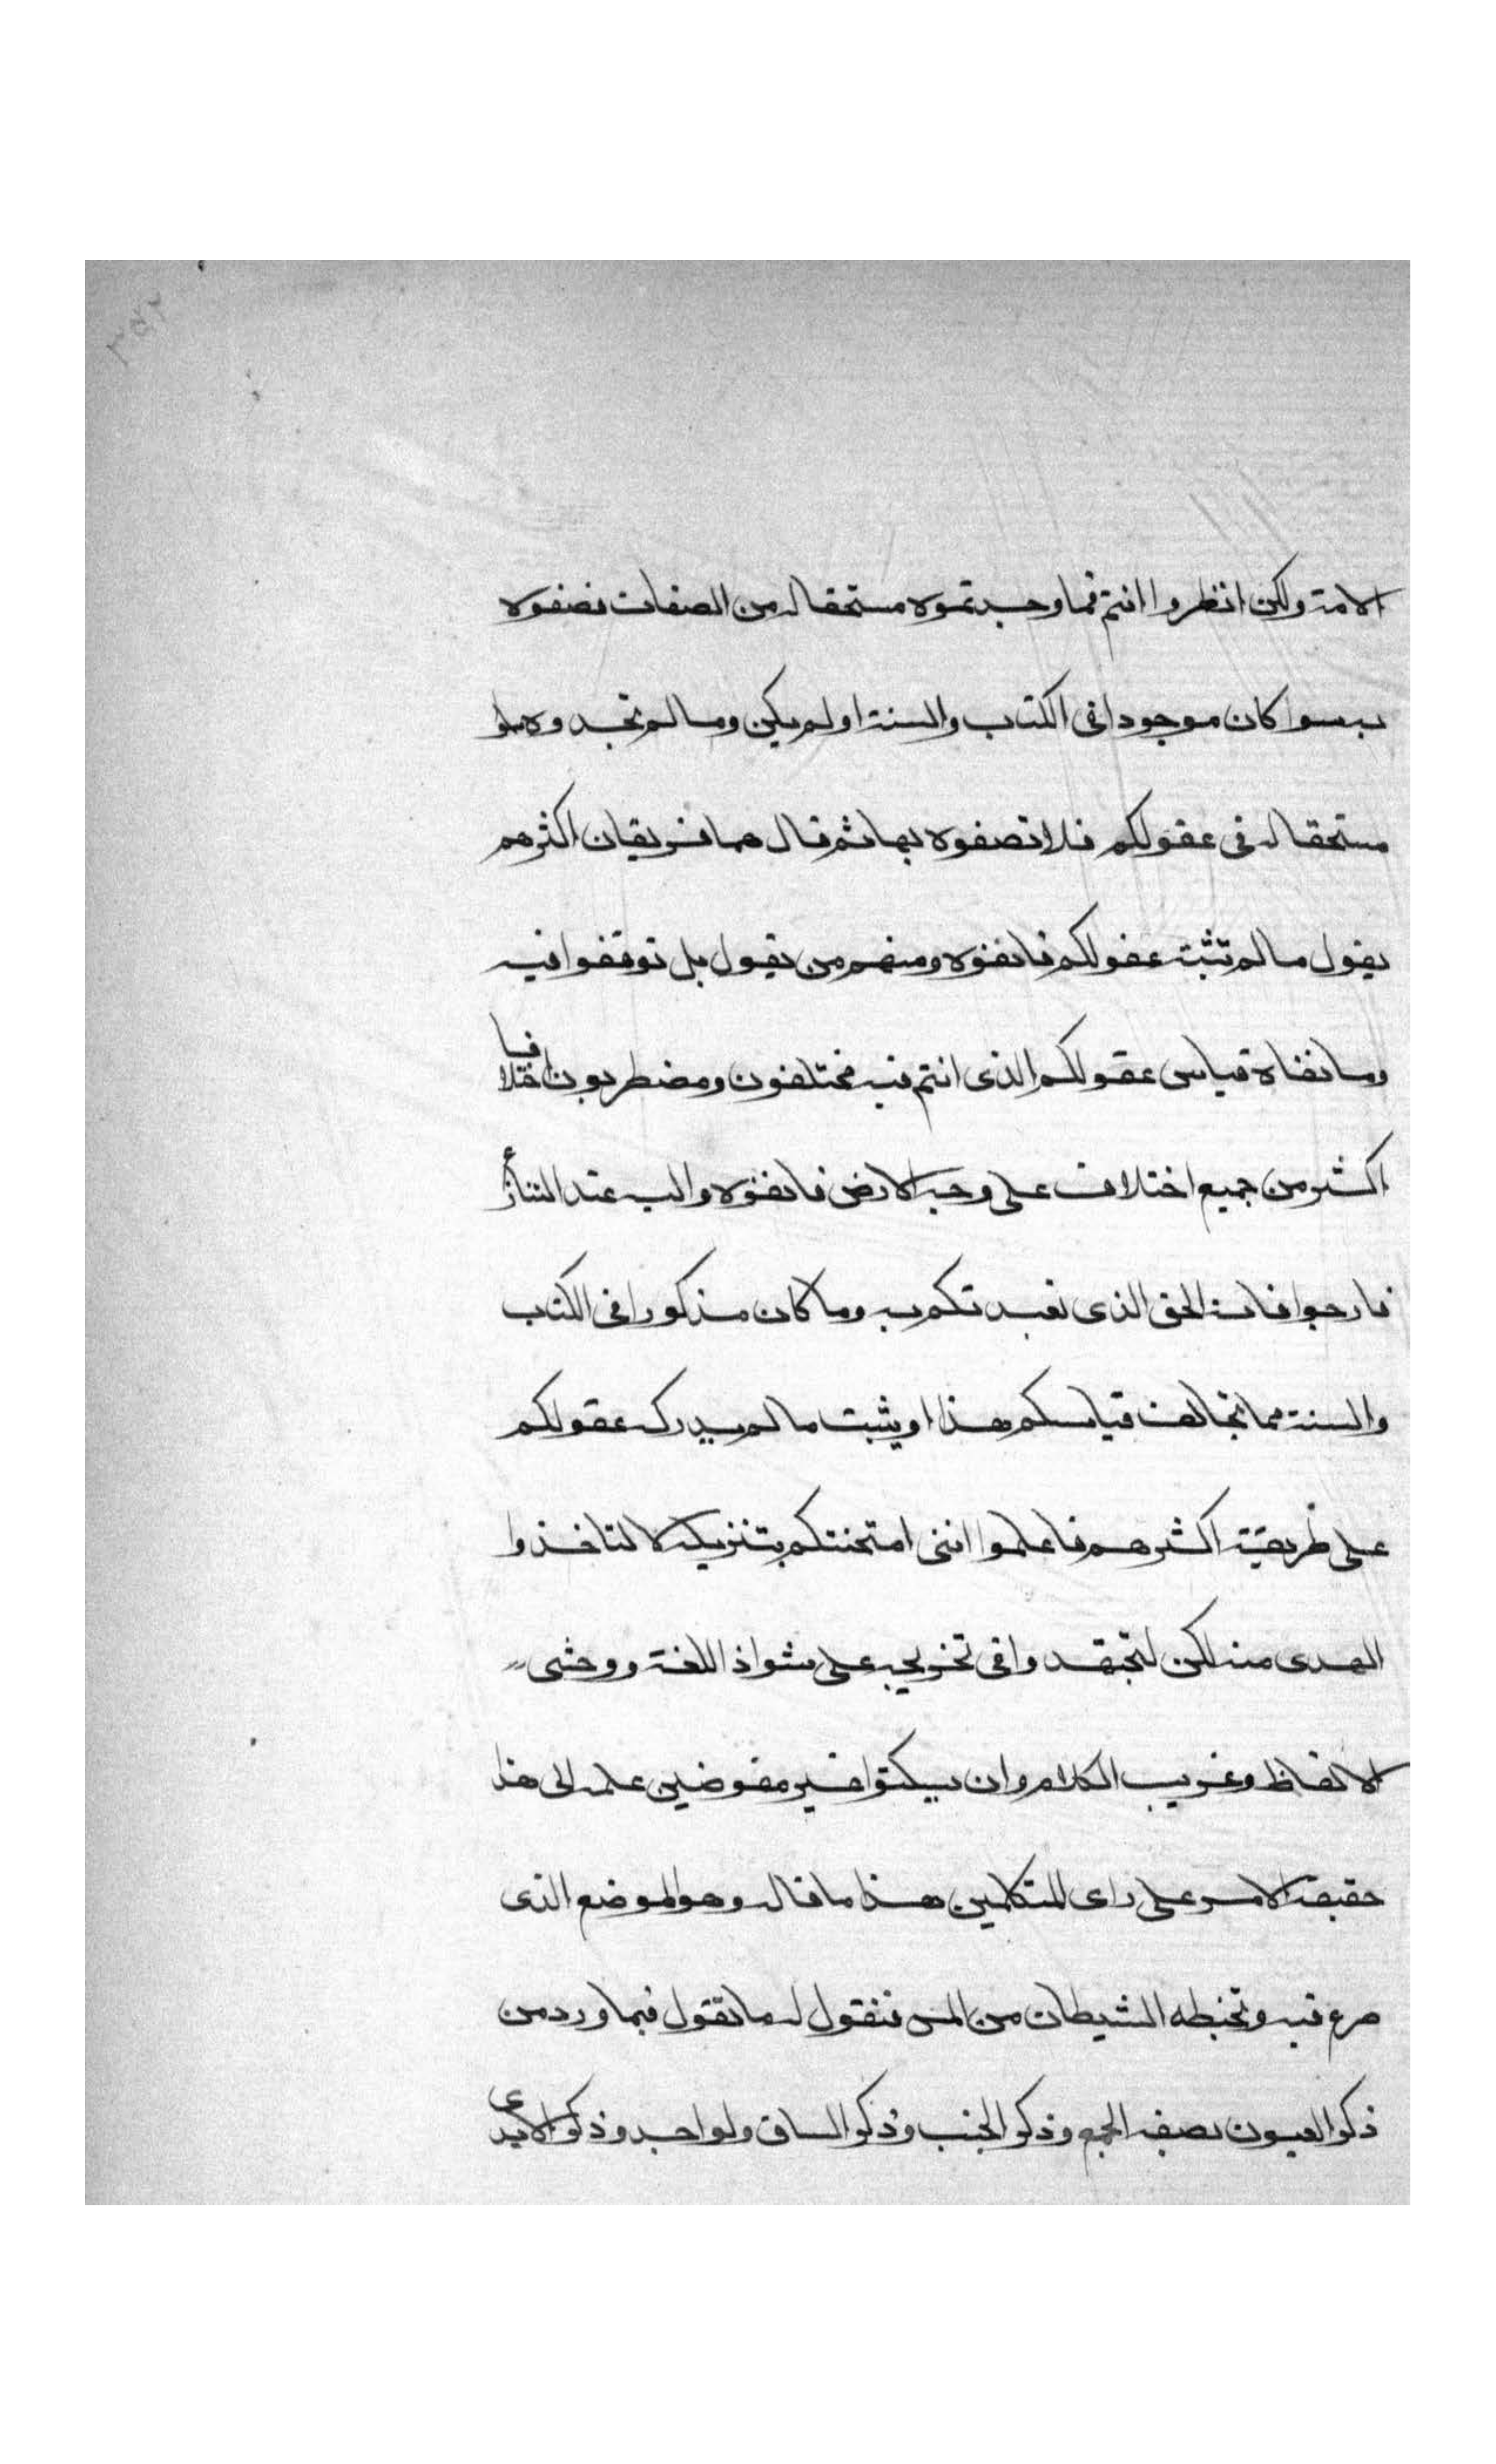 الامة ولكن انظروا انتم فما وجدتموه مستحقا له من الصفات فصفوه
به سوا كان موجودا فى الكتاب والسنة او لم يكن وما لم تجدوه
مستحقا له فى عقولكم فلا تصفوه بها ثم قال هما فريقان اكثرهم
يقول ما لم تثبته عقولكم فانفوه ومنهم من يقول بل توقفوا فيه
وما نفاه قياس عقولكم الذى انتم فيه مختلفون ومضطربون اختلافا
اكثر من جميع اختلاف على وجه الارض فانفوه واليه عند التنازع
فارجعوا فانه الحق الذى تعبدتكم به وما كان مذكورا فى الكتاب
والسنة مما يخالف قياسكم هذا او يثبت ما لم يدركه عقولكم
على طريقة اكثرهم فاعلموا اننى امتحنتكم بتنزيله لا لتاخذوا
الهدى منه لكن لتجتهدوا فى تخريجه على شواذ اللغة ووحشى
الالفاظ وغريب الكلام وان تسكتوا فيه مفوضين علمه الى هذا
حقيقة الامر على راى المتكلمين هذا ما قاله وهو الموضع الذى
صرع فيه وتخبطه الشيطان من المس فنقول له ما تقول فيما ورد من
ذكر العيون بصفة الجمع وذكر الجنب وذكر الساق والواحد وذكر الايدى